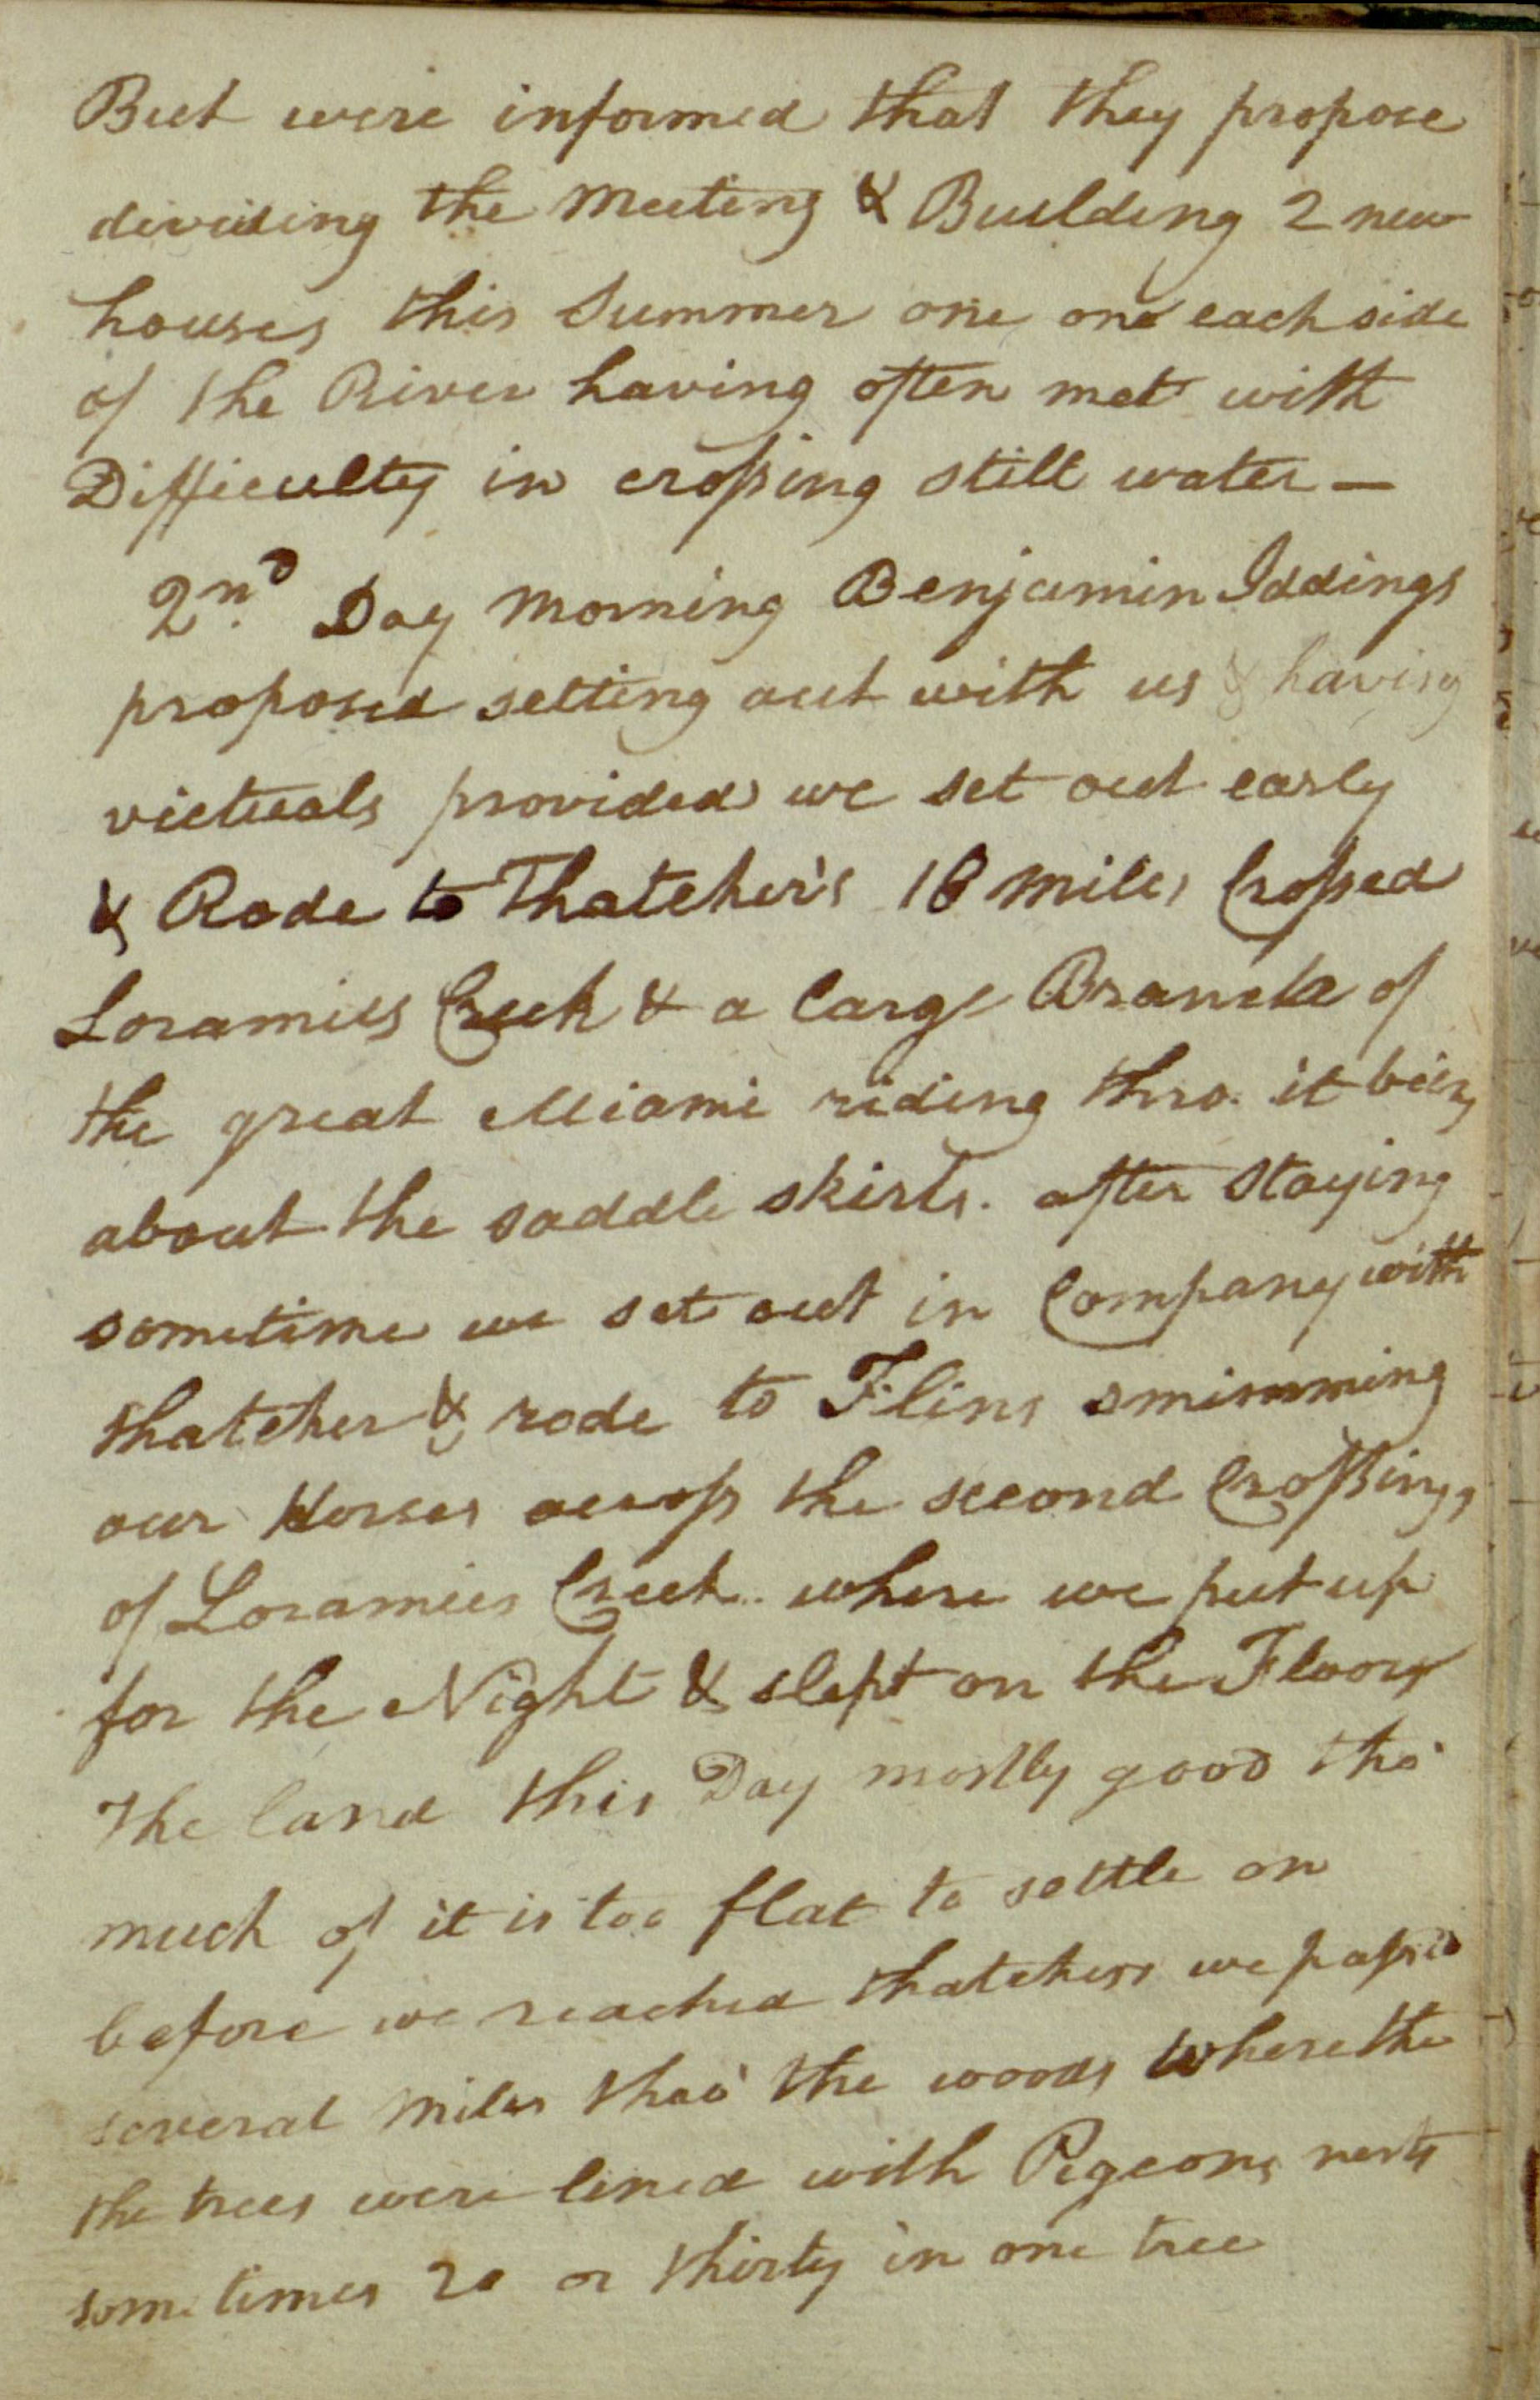 But were informed that they propose
dividing the meeting & Building 2 new
houses this Summer one one each side
of the River having often met with
Difficulty in crossing still water —
2nd Day morning Benjamin Iddings
proposed setting out with us & having
victuals provided we set out early
& Rode to Thatcher's 18 miles Crossed
Loramies Creek & a large Branch of
the great Miami riding thro. it being
about the saddle skirts. after staying
sometime we set out in Company with
thatcher & rode to Flins swimming
our Horses across the second Crossing,
of Loramies Creek.. where we put up
for the Night & slept on the Floor
The land this Day mostly good tho'
much of it is too flat to settle on
before we reached thatchers we passed
several miles thro' the woods where the
the trees were lined with Pegeons nests
sometimes 20 or thirty in one tree